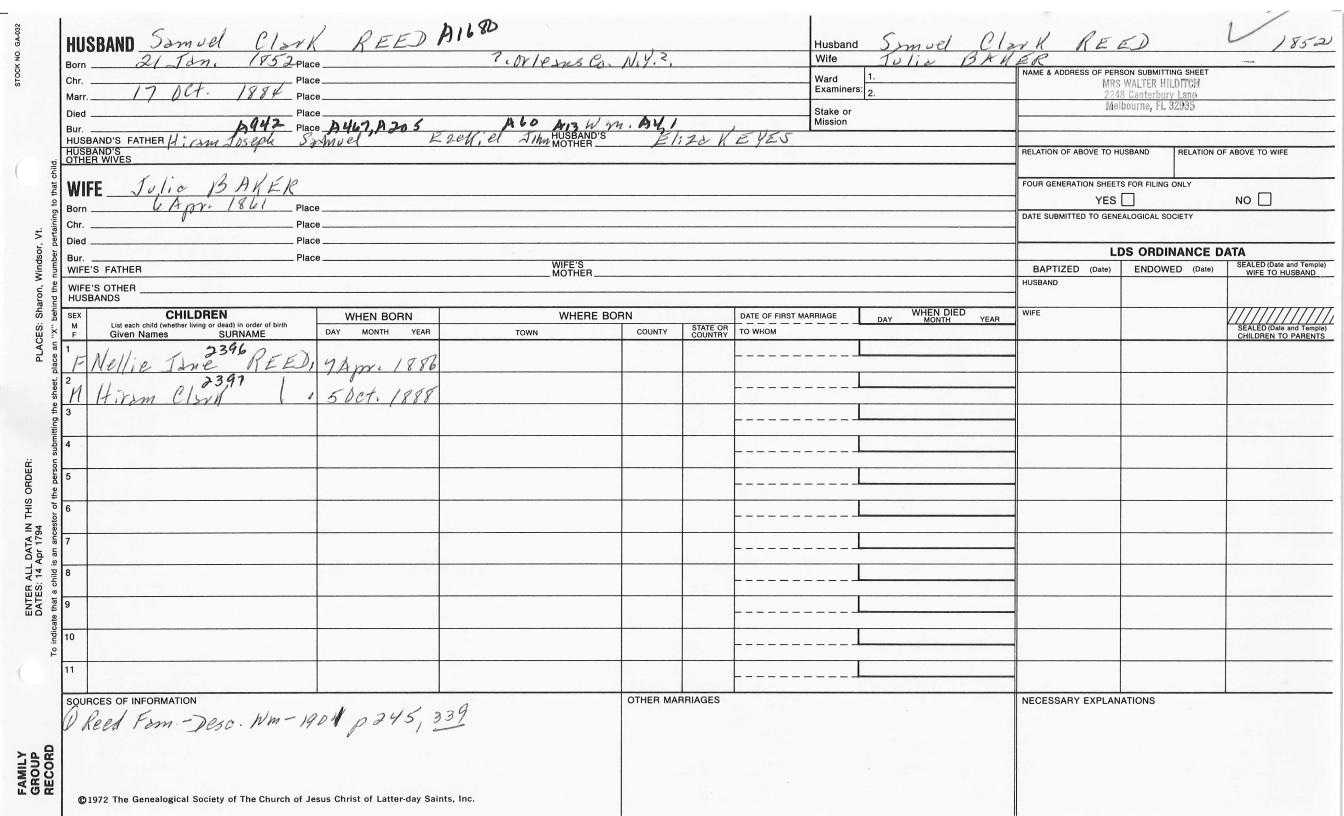 STOCK NO GA-032
HUSBAND Samuel Clark REED A1680
Born 21 Jan. 1852 Place ?. Orleans Co. N.Y.?.
Chr. Place
Marr. 17 Oct. 1884 Place
Died Place
Bur. A942 Place A467, A205 A60 A13 Wm. A4,1
HUSBAND'S FATHER Hiram Joseph Samuel Ezekiel John HUSBAND'S MOTHER Eliza KEYES
HUSBAND'S OTHER WIVES
Husband Samuel Clark REED 1852
Wife Julia BAKER
Ward Examiners: 1.
2.
Stake or Mission
NAME & ADDRESS OF PERSON SUBMITTING SHEET
MRS WALTER HILDITCH
2248 Canterbury Lane
Melbourne, FL 32935
RELATION OF ABOVE TO HUSBAND RELATION OF ABOVE TO WIFE
FOUR GENERATION SHEETS FOR FILING ONLY
YES NO
DATE SUBMITTED TO GENEALOGICAL SOCIETY
WIFE Julia BAKER
Born 6 Apr. 1861 Place
Chr. Place
Died Place
Bur. Place
WIFE'S FATHER WIFE'S MOTHER
WIFE'S OTHER HUSBANDS
LDS ORDINANCE DATA
BAPTIZED (Date) ENDOWED (Date) SEALED (Date and Temple) WIFE TO HUSBAND
HUSBAND
WIFE
SEALED (Date and Temple) CHILDREN TO PARENTS
SEX M F
CHILDREN
List each child (whether living or dead) in order of birth
Given Names SURNAME
WHEN BORN
DAY MONTH YEAR
WHERE BORN
TOWN COUNTY STATE OR COUNTRY
DATE OF FIRST MARRIAGE
TO WHOM
WHEN DIED
DAY MONTH YEAR
2396
1 F Nellie Jane REED, 9 Apr. 1886
2397
2 M Hiram Clark 5 Oct. 1888
3
4
5
6
7
8
9
10
11
SOURCES OF INFORMATION
① Reed Fam - Desc. Wm - 1901 p 245, 339
OTHER MARRIAGES
NECESSARY EXPLANATIONS
©1972 The Genealogical Society of The Church of Jesus Christ of Latter-day Saints, Inc.
PLACES: Sharon, Windsor, Vt.
To indicate that a child is an ancestor of the person submitting the sheet, place an "X" behind the number pertaining to that child.
ENTER ALL DATA IN THIS ORDER:
DATES: 14 Apr 1794
FAMILY GROUP RECORD